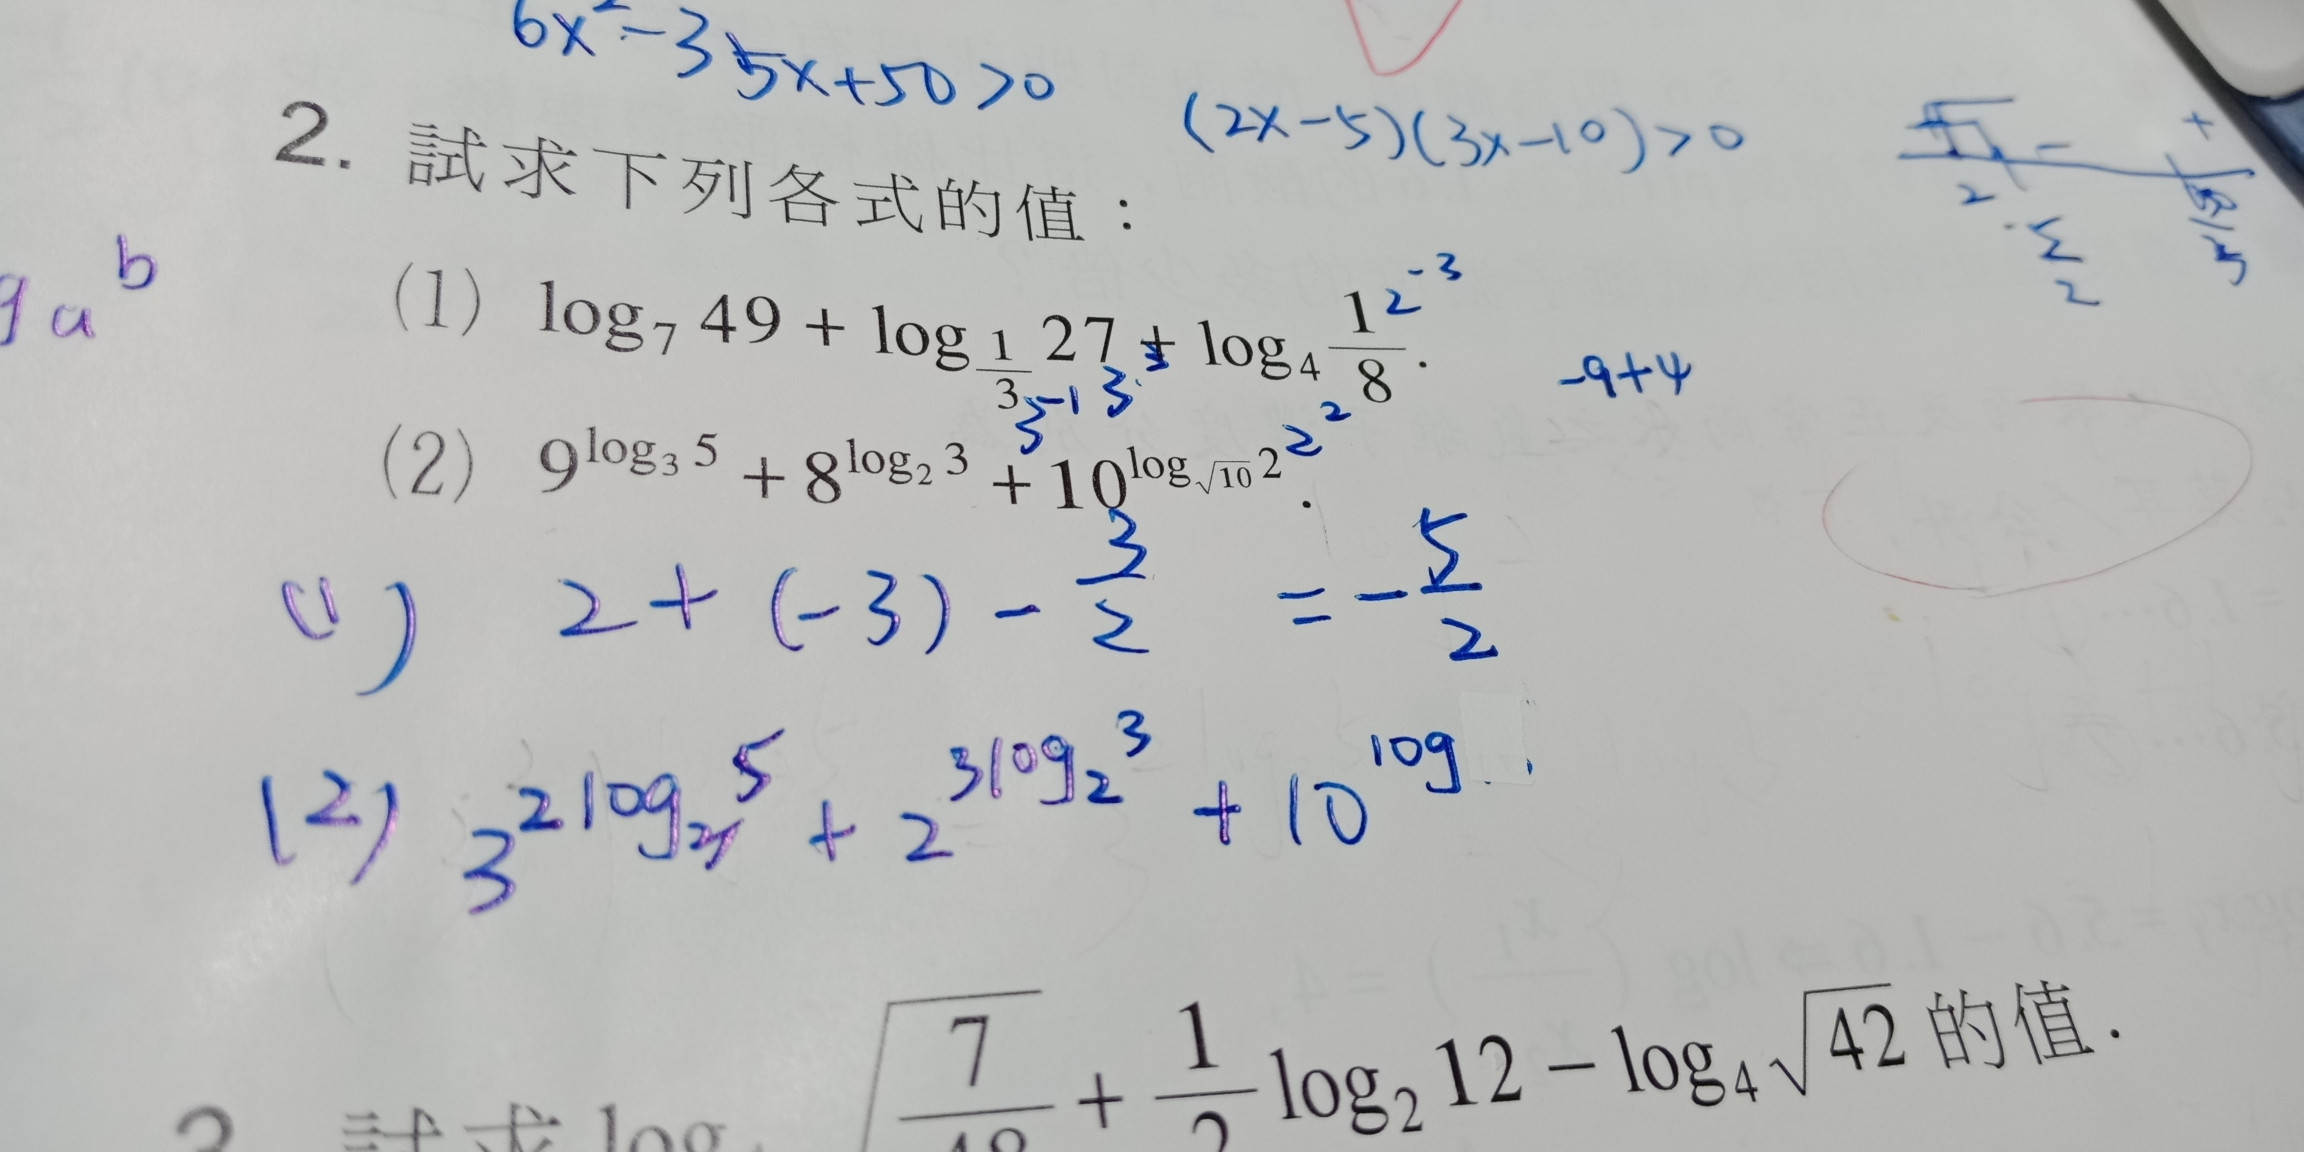 6x²-35x+50>0
(2x-5)(3x-10)>0
+
-
2
5/2
2. 試求下列各式的值：
a^b
(1) log₇ 49 + log_{1/3} 27 + log₄ 1/8.
2^-3
3^-1 3^3
2^2
-9+4
(2) 9^{log₃ 5} + 8^{log₂ 3} + 10^{log_{√10} 2}.
(1) 2+(-3)-3/2 =-5/2
(2) 3^{2log 5} + 2^{3log₂ 3} + 10^{log}
試求 log √7 + 1/2 log₂ 12 - log₄ √42 的值.